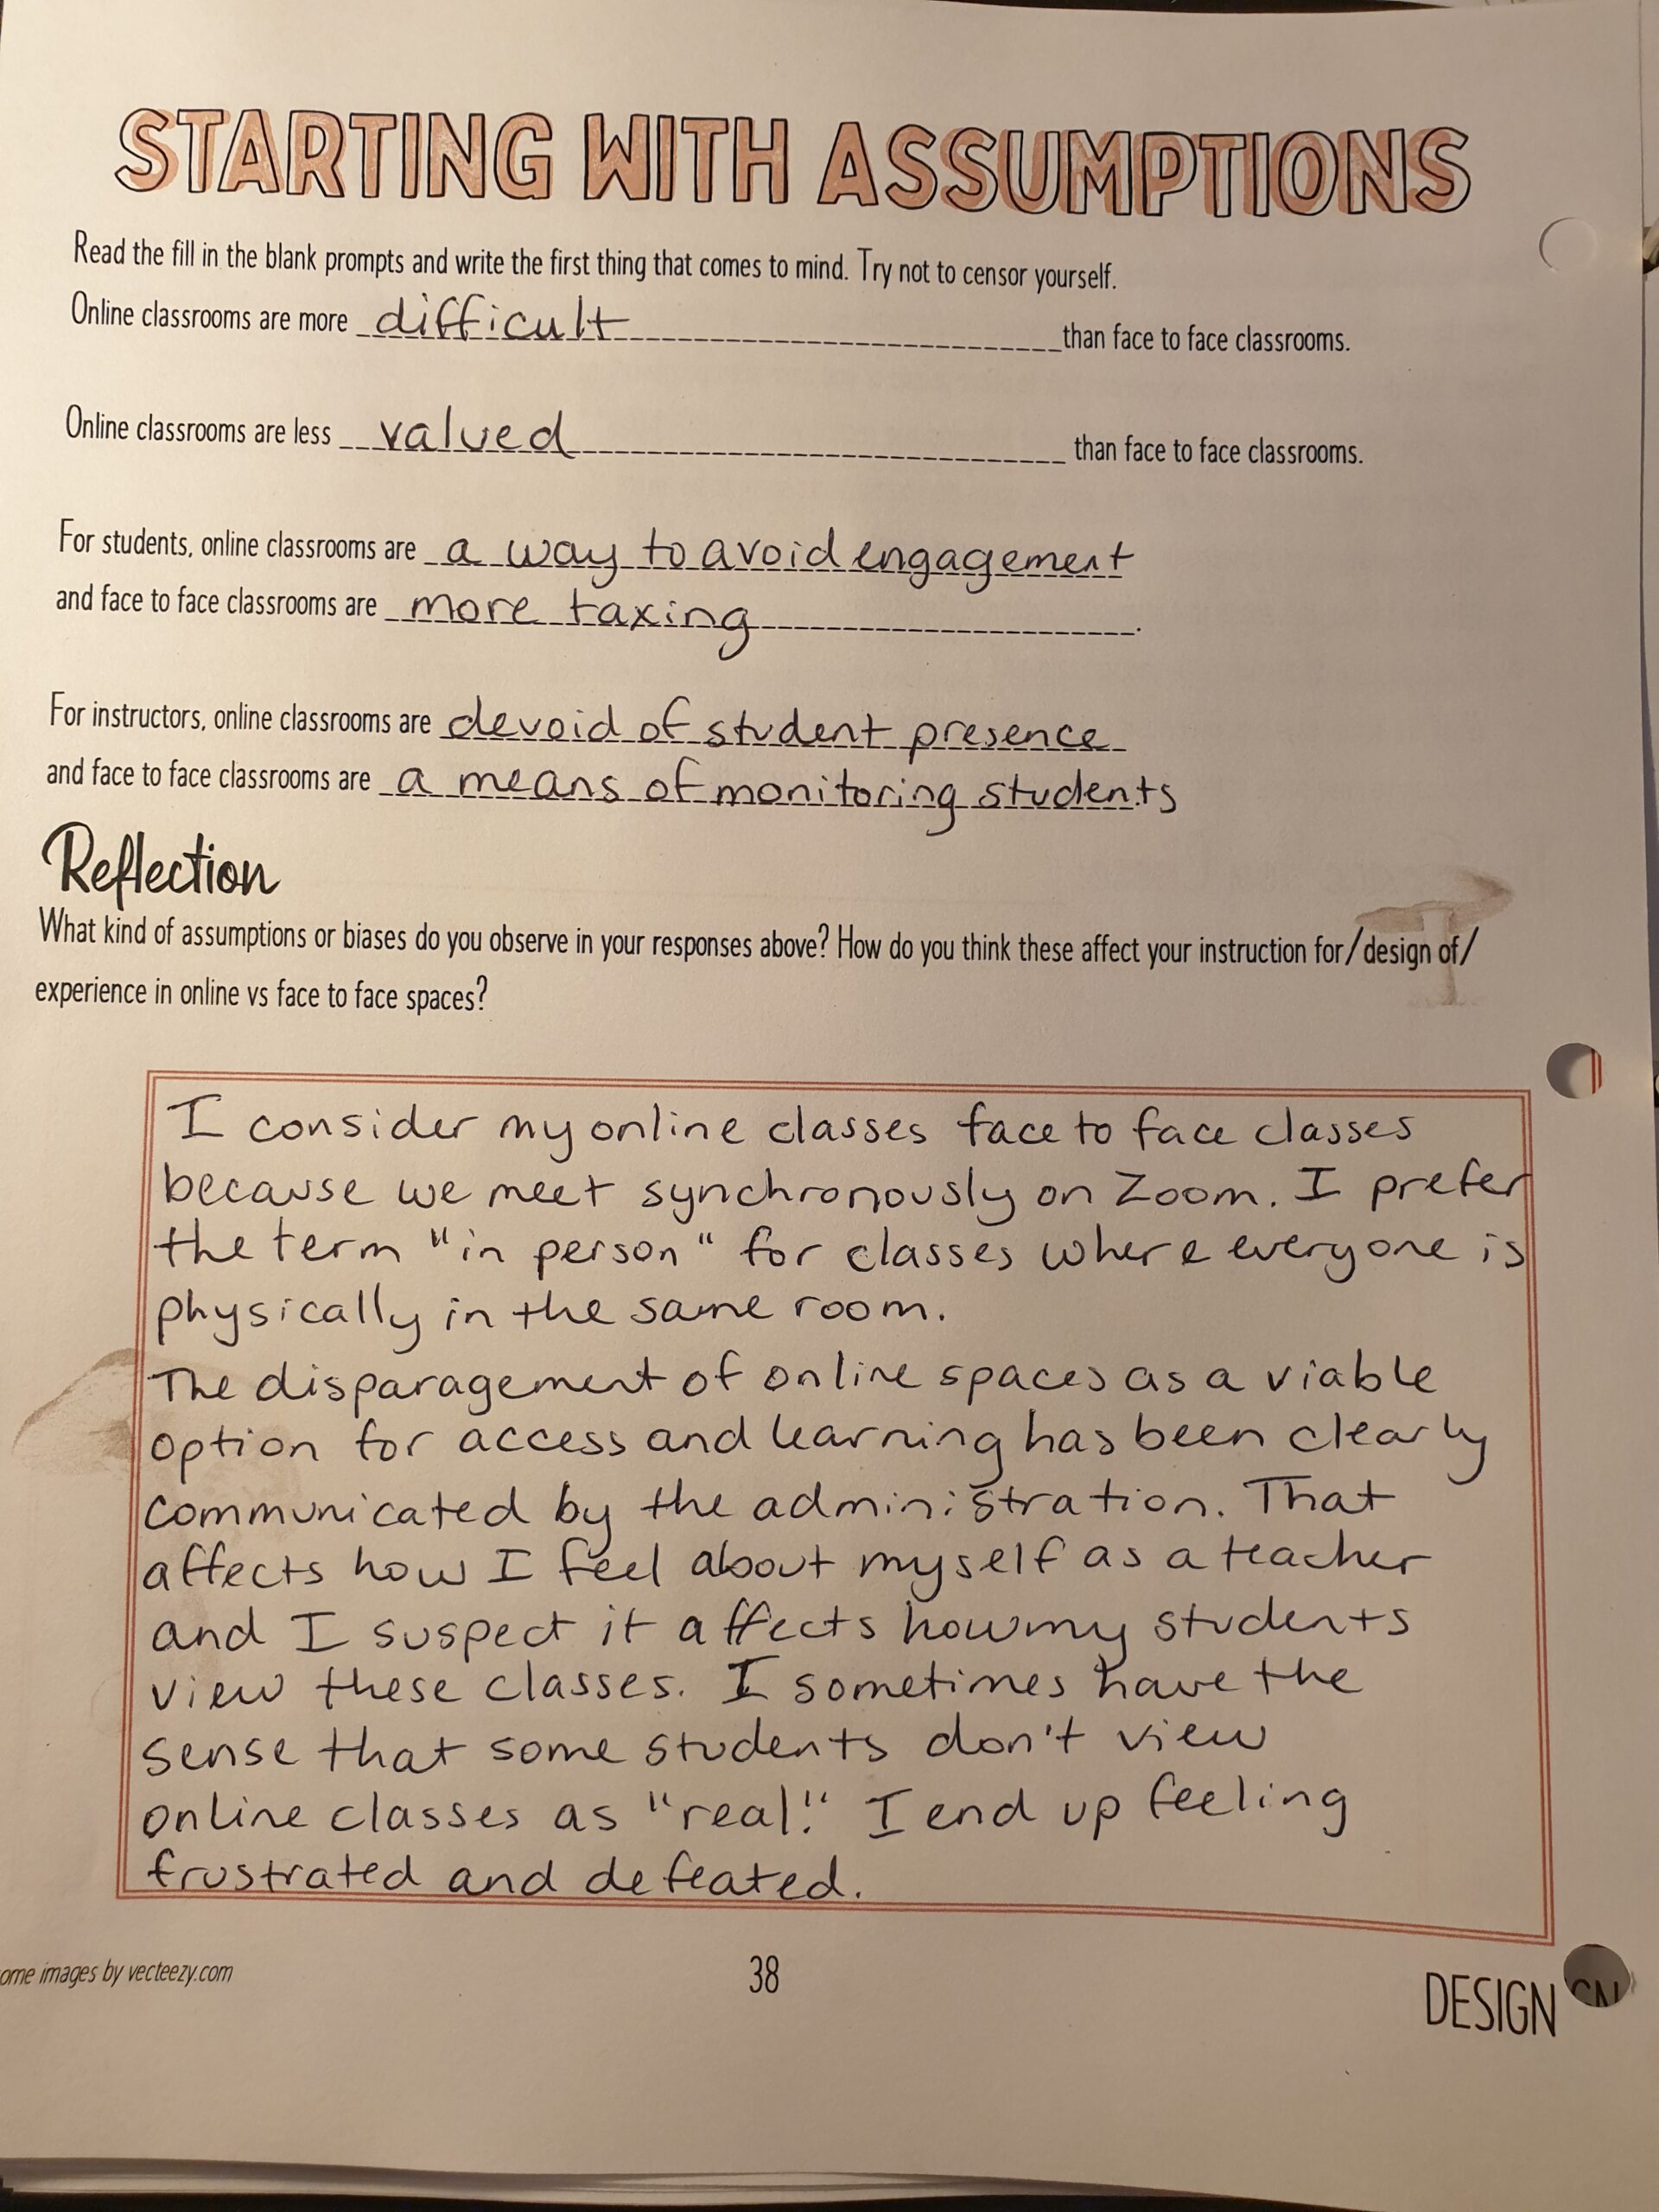 STARTING WITH ASSUMPTIONS
Read the fill in the blank prompts and write the first thing that comes to mind. Try not to censor yourself.
Online classrooms are more difficult than face to face classrooms.
Online classrooms are less valued than face to face classrooms.
For students, online classrooms are a way to avoid engagement
and face to face classrooms are more taxing.
For instructors, online classrooms are devoid of student presence
and face to face classrooms are a means of monitoring students
Reflection
What kind of assumptions or biases do you observe in your responses above? How do you think these affect your instruction for/design of/
experience in online vs face to face spaces?
I consider my online classes face to face classes
because we meet synchronously on Zoom. I prefer
the term "in person" for classes where everyone is
physically in the same room.
The disparagement of online spaces as a viable
option for access and learning has been clearly
communicated by the administration. That
affects how I feel about myself as a teacher
and I suspect it affects how my students
view these classes. I sometimes have the
sense that some students don't view
online classes as "real." I end up feeling
frustrated and defeated.
ome images by vecteezy.com
38
DESIGN